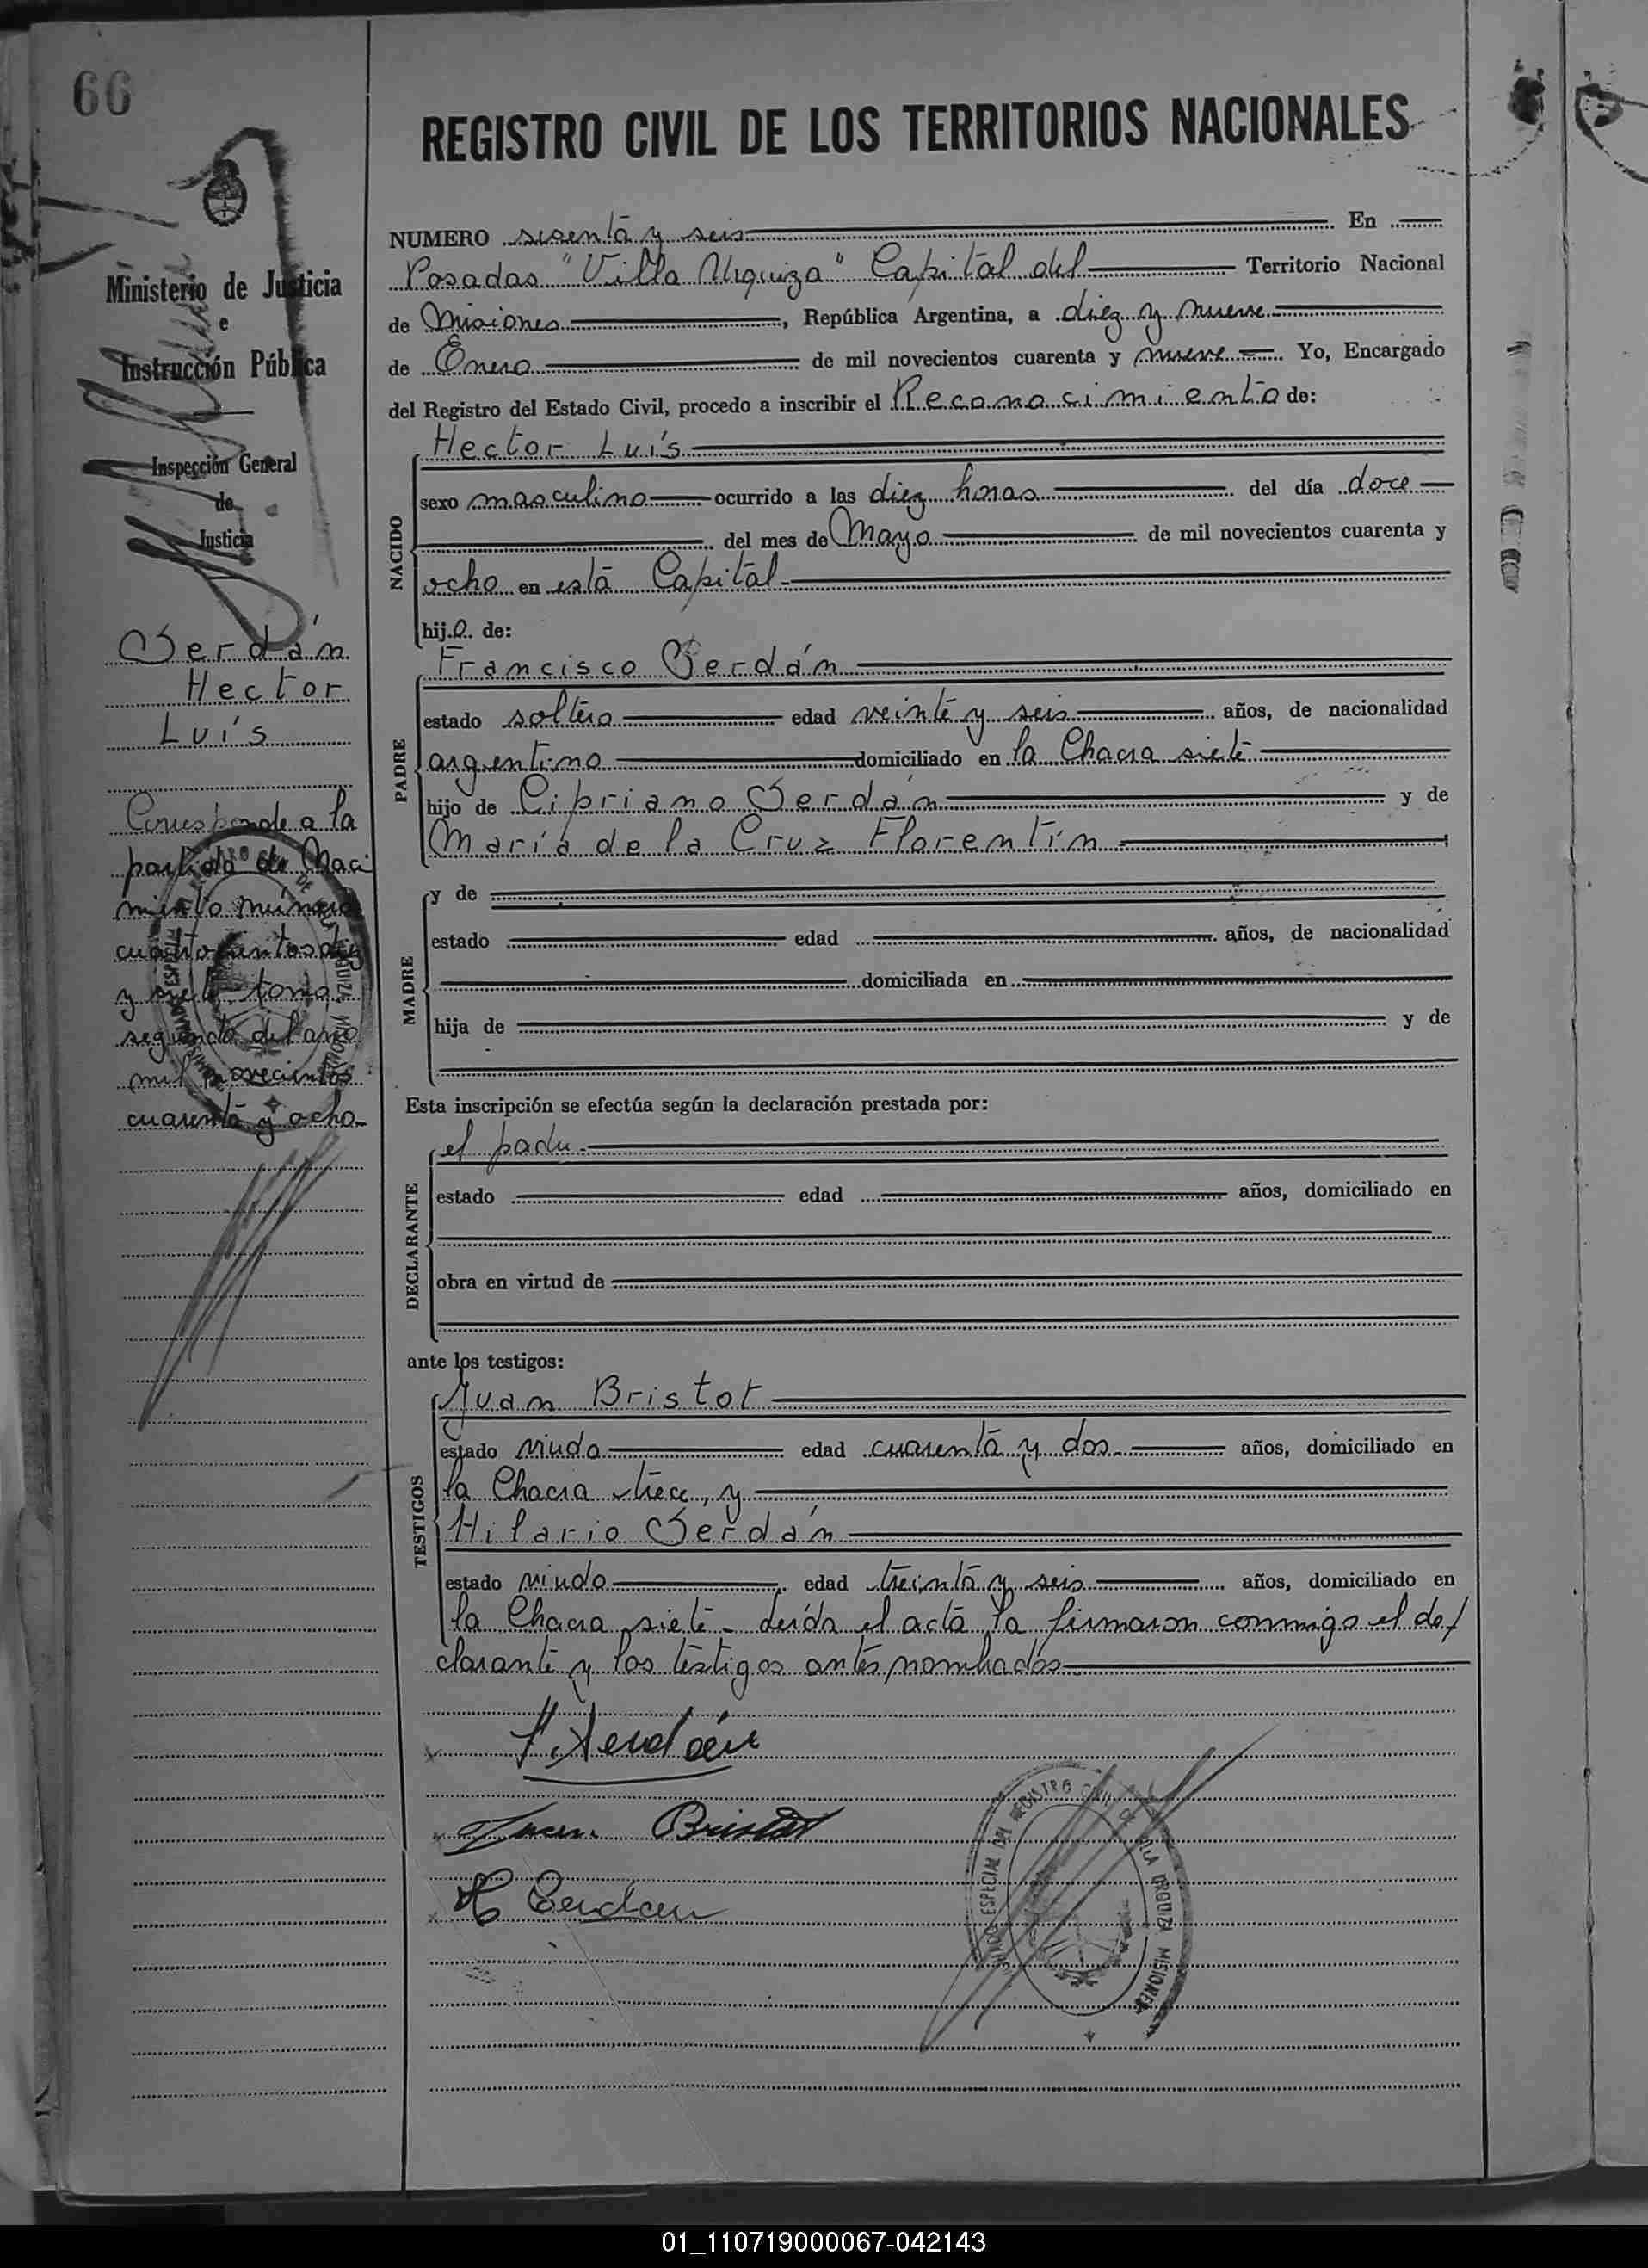 66
REGISTRO CIVIL DE LOS TERRITORIOS NACIONALES
Ministerio de Justicia
e
Instrucción Pública
Inspección General
de
Justicia
Cerdán
Hector
Luís
Corresponde a la
partida de Naci
miento número
cuatrocientos diez
y siete tomo
segundo del año
mil novecientos
cuarenta y ocho
NUMERO sesenta y seis En
Posadas "Villa Urquiza" Capital del Territorio Nacional
de Misiones, República Argentina, a diez y nueve
de Enero de mil novecientos cuarenta y nueve Yo, Encargado
del Registro del Estado Civil, procedo a inscribir el Reconocimiento de:
NACIDO
Hector Luís
sexo masculino ocurrido a las diez horas del día doce
del mes de Mayo de mil novecientos cuarenta y
ocho en está Capital
hijo de:
PADRE
Francisco Cerdán
estado soltero edad veinte y seis años, de nacionalidad
argentino domiciliado en la Chacra siete
hijo de Cipriano Cerdán y de
María de la Cruz Florentín
MADRE
y de
estado edad años, de nacionalidad
domiciliada en
hija de y de
Esta inscripción se efectúa según la declaración prestada por:
DECLARANTE
el padre
estado edad años, domiciliado en
obra en virtud de
ante los testigos:
TESTIGOS
Juan Bristot
estado viudo edad cuarenta y dos años, domiciliado en
la Chacra trece, y
Hilario Cerdán
estado viudo edad treinta y seis años, domiciliado en
la Chacra siete - Leída el acta la firmaron conmigo el de/
clarante y los testigos antes nombrados
Juan Bristot
H Cerdan
ESPECIAL DEL REGISTRO CIVIL DE VILLA URQUIZA MISIONES
01_110719000067-042143